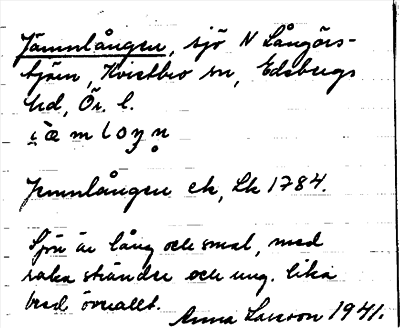 Jämnlången, sjö N Långörs-
tjärn, Kvistbro sn, Edsbergs
hd, Ör. l.
Jemnlången ek, Lk 1784.
Sjön är lång och smal, med
raka stränder och ung. lika
bred överallt.
Anna Larsson 1941.